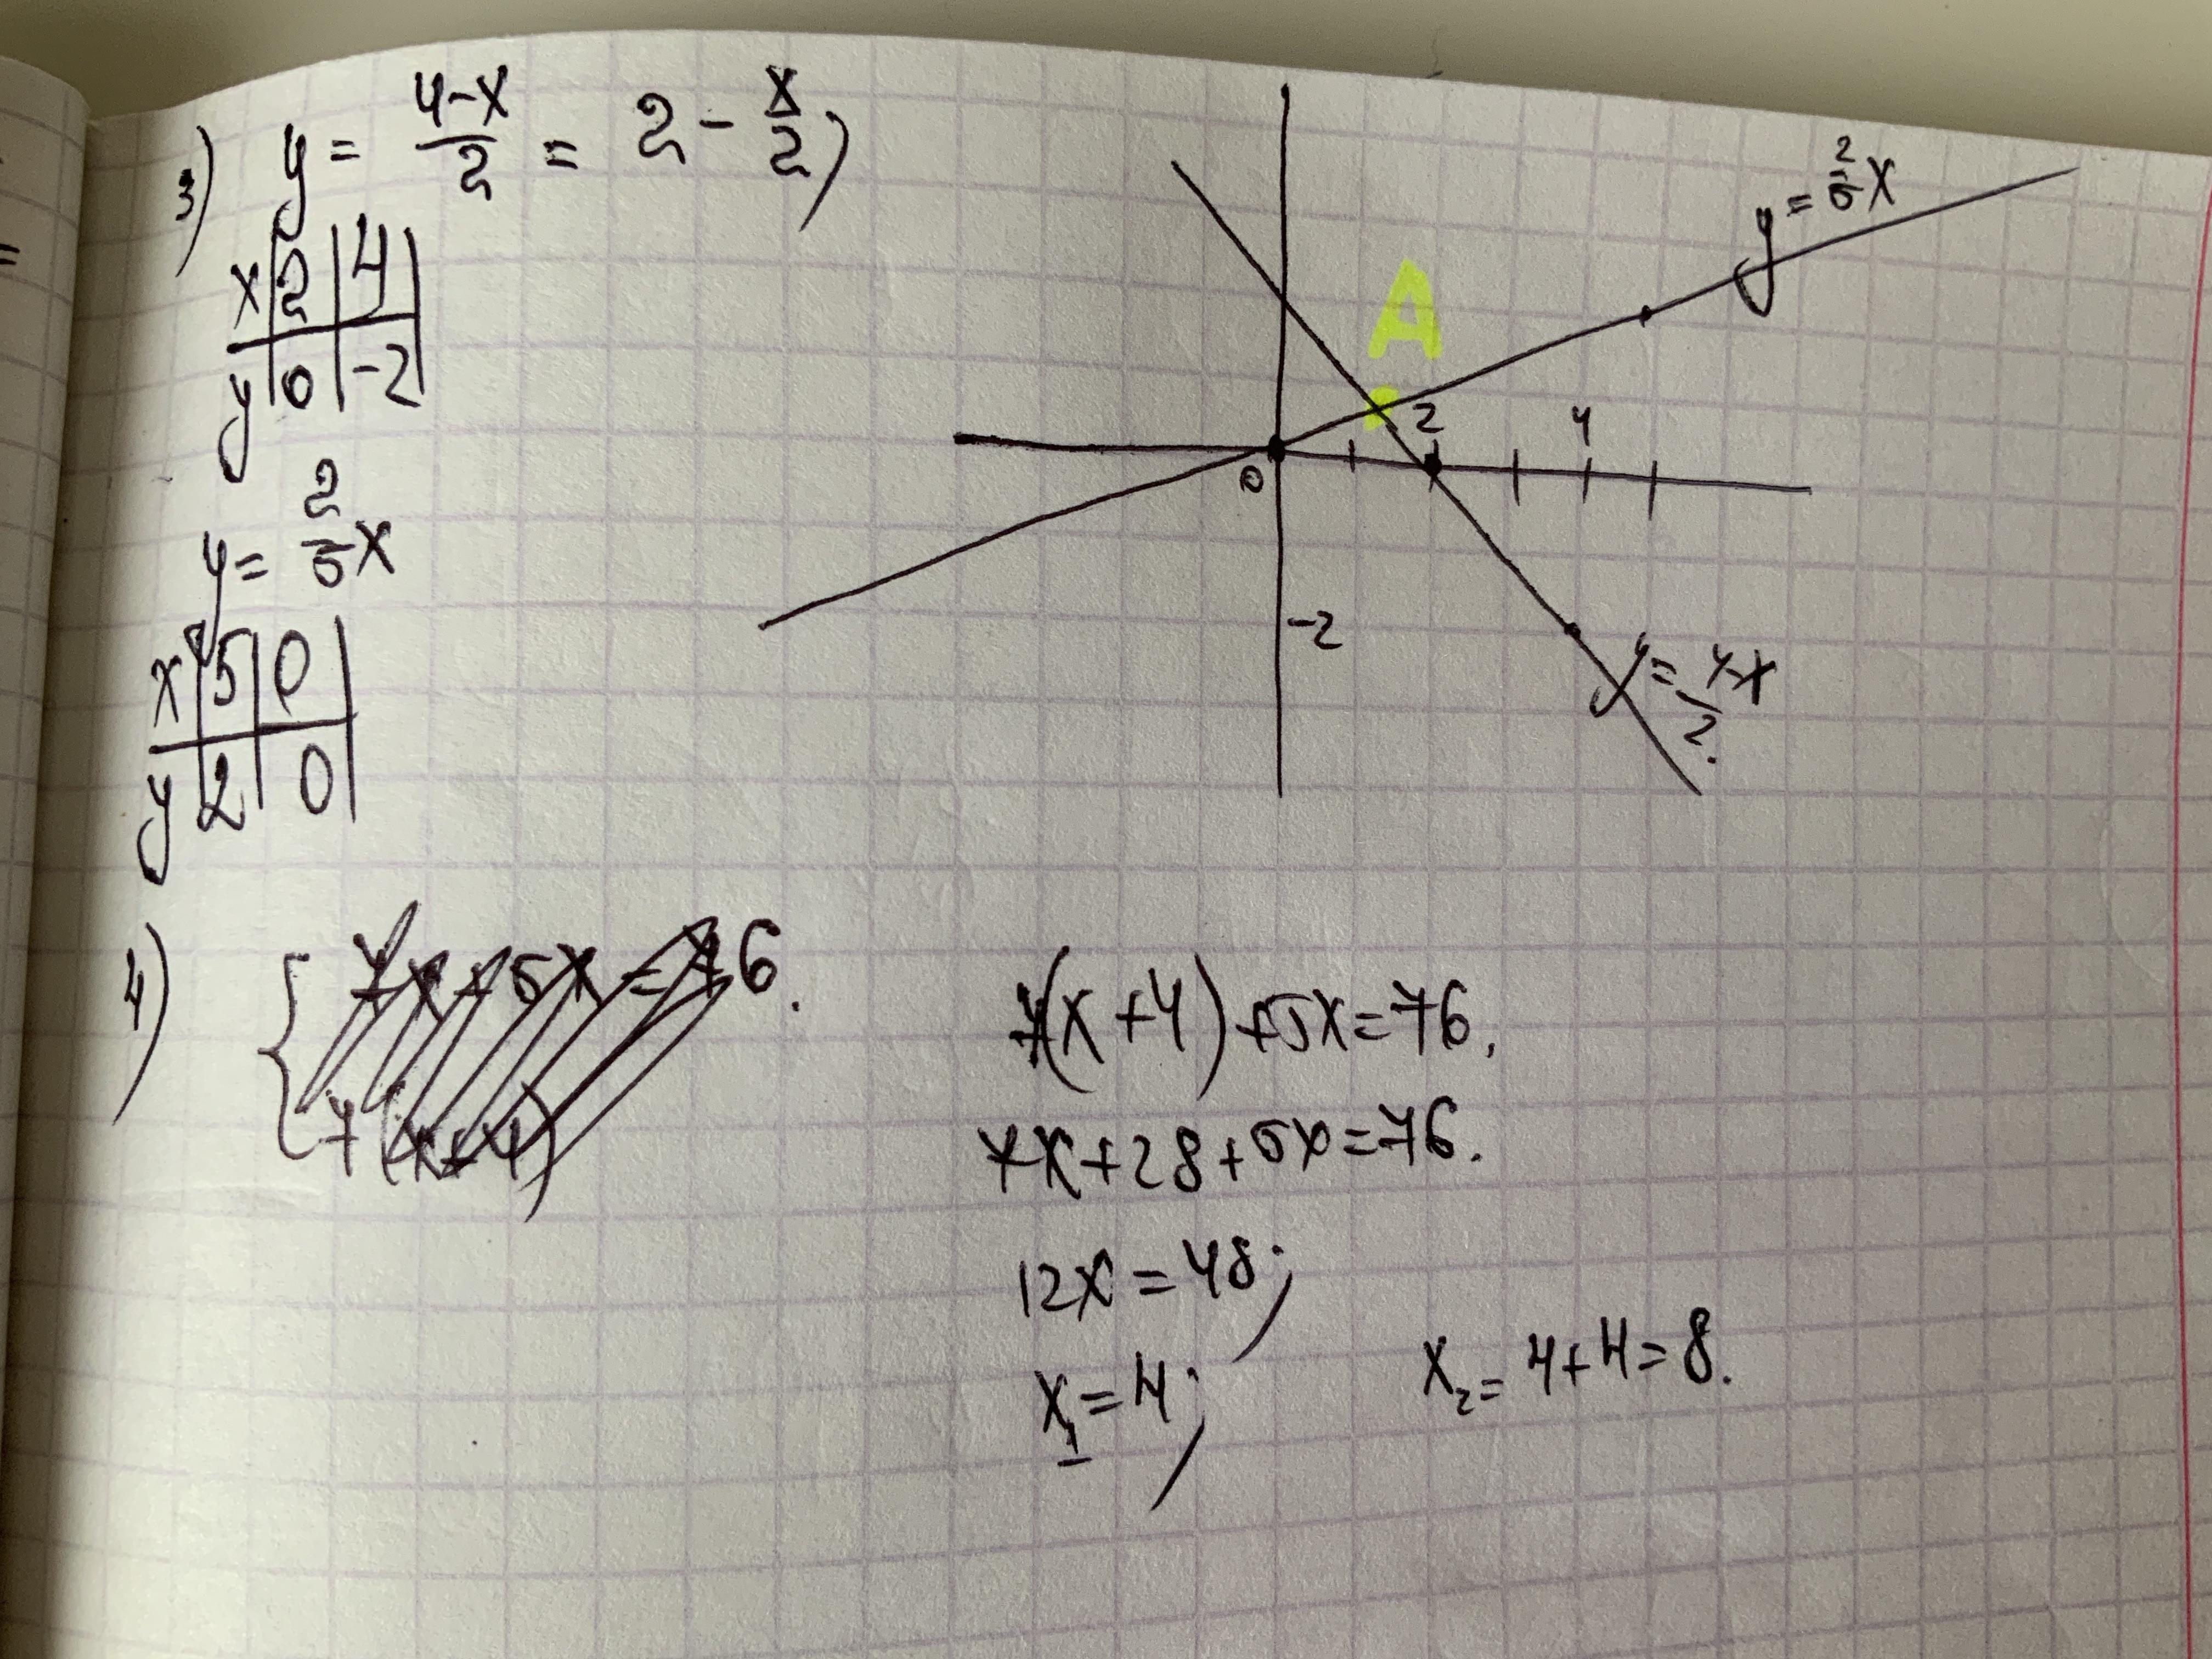 3) y = (4-x)/2 = 2 - x/2;
x | 2 | 4
y | 0 | -2
y = 2/5 x
x | 5 | 0
y | 2 | 0
A
y = 2/5 x
2 4
0
-2
y = (4-x)/2.
4) { 7x + 5x = 76.
7(x+4)
7(x+4)+5x=76.
7x+28+5x=76.
12x=48;
x₁=4;
x₂=4+4=8.
=